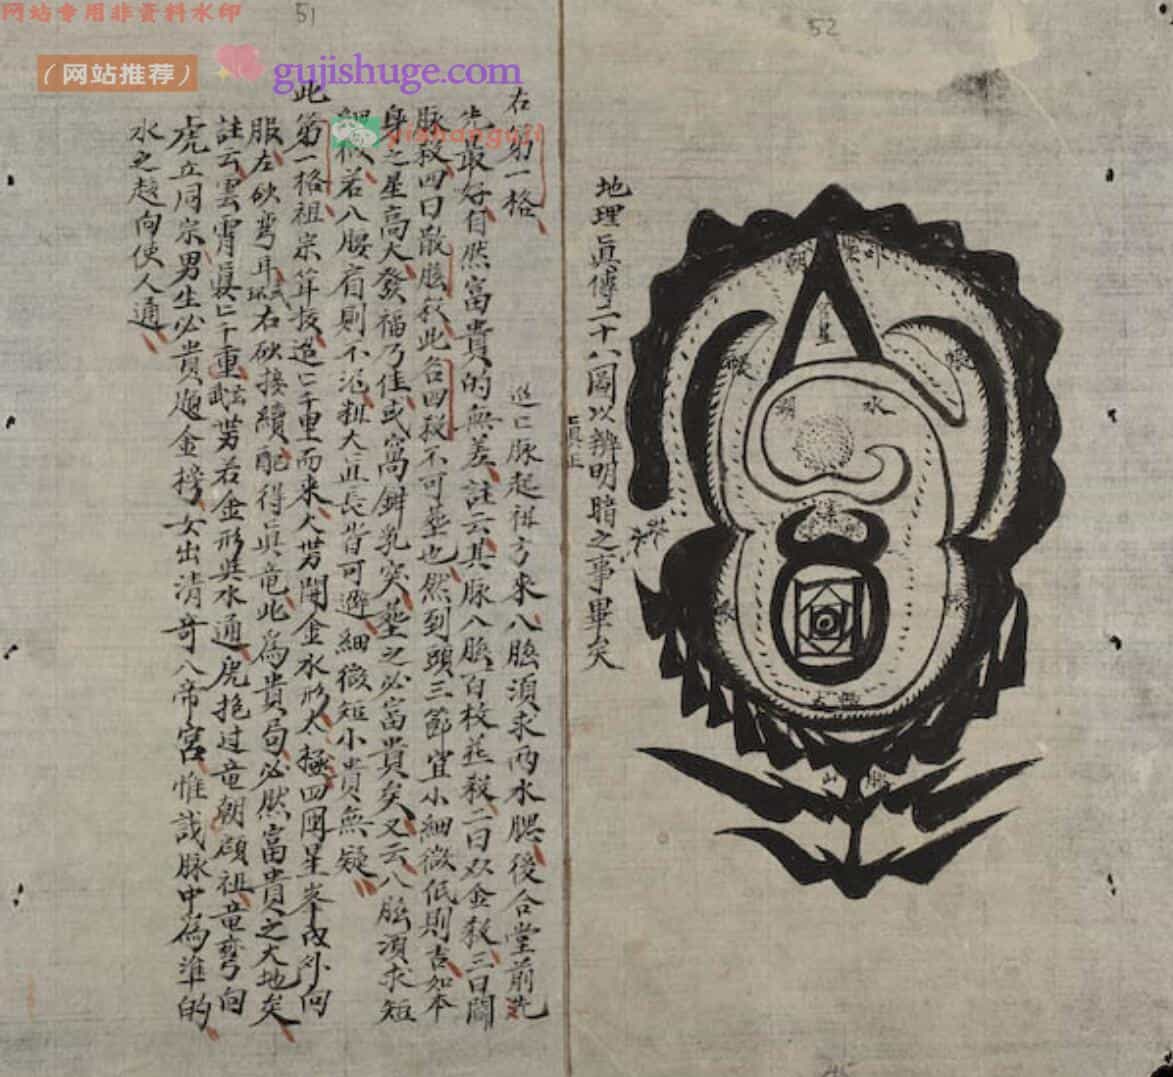 网站专用非资料水印
51
52
（网站推荐）
gujishuge.com
yishanguji
水
朝
山
地理真傳二十八圖以辨明暗之事畢矣
右第一格
脉起祖方來八須求兩水腮後合堂前
先最好自然富貴的無差註云其脉八百枝並殺二曰金殺三曰闘
脉殺四曰散殺此名四殺不可塟也然到頭三節宜小細微低則吉如本
身之星高大發福乃佳或窩鉗乳突塟之必富貴矣又云八須求短
細微若八腰有則不粗大直長皆可避細微短小貴無疑
此第一格祖宗耸拔千里而来大势開金水形太極四圍星峯内外向
服左砂弯耳右砂接續配得真竜此為貴局必然富貴之大地矣
註云雲霄千重玄武势若金形與水通虎抱过竜朝顧祖竜弯向
虎立同宗男生必貴題金榜女出清奇八帝宮惟識脉中為準的
水之趍向使人通